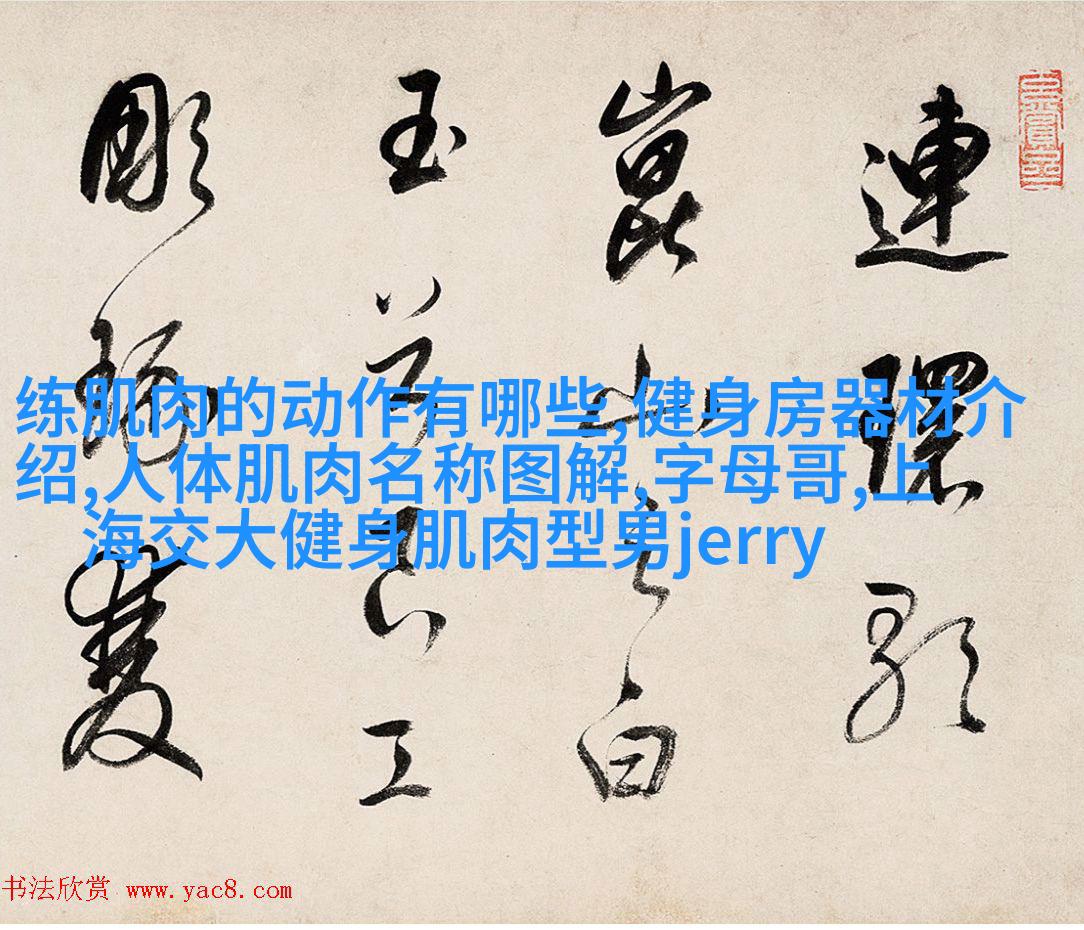 連環歌
崑山之白
玉兮良工
彫琢雙
练肌肉的动作有哪些,健身房器材介
绍,人体肌肉名称图解,字母哥,上
海交大健身肌肉型男jerry
书法欣赏 www.yac8.com